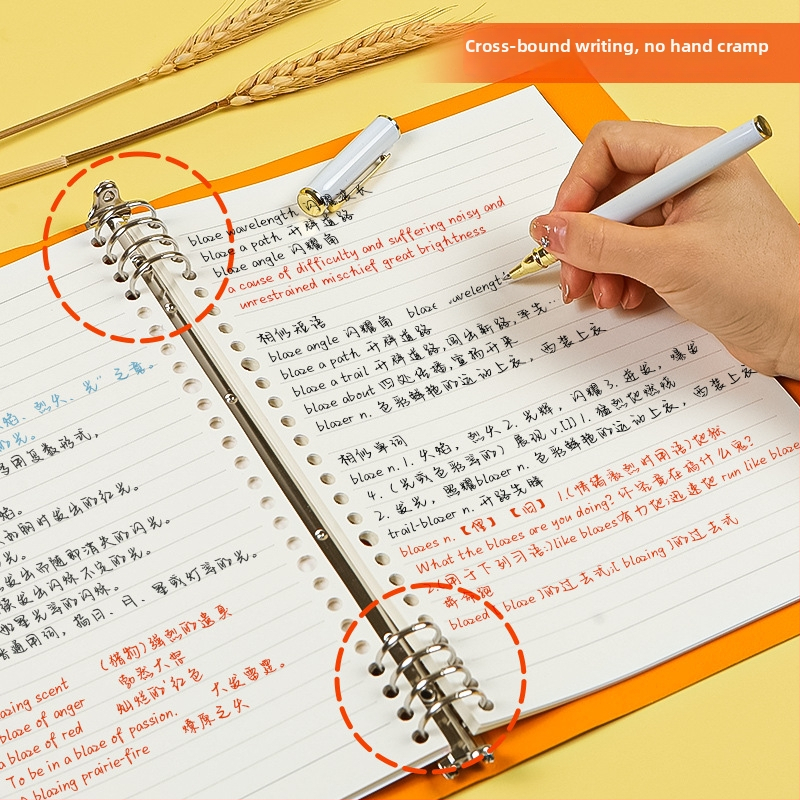 Cross-bound writing, no hand cramp
火焰、烈火、光"之意。
的光。
多用复数形式,
焰。
的瞬时发出的红光。
光。
发出而随即消失的闪光。
续发出闪烁不定的光。
如星光等的闪烁。
普通用词, 指日、月、星或灯等的光。
blazing scent (猎物)强烈的遗臭
blaze of anger 勃然大怒
a blaze of red 灿烂的红色
To be in a blaze of passion. 大发雷霆。
A blazing prairie-fire 燎原之火
blaze wavelength 闪耀波长
blaze a path 开辟道路
blaze angle 闪耀角
a cause of difficulty and suffering noisy and
unrestrained mischief great brightness
相似短语
blaze angle 闪耀角 blaze wavelength
blaze a path 开辟道路
blaze a trail 开辟道路,闯出新路,率先…
blaze about 四处传播,宣扬开来
blazer n. 色彩鲜艳的运动上衣, 西装上衣
相似单词
blaze n. 1. 火焰, 烈火 2. 光辉, 闪耀 3. 迸发, 爆发
4. (光或色彩等的) 展现 v.[I] 1. 猛烈地燃烧
2. 发光, 照耀 blazer n. 色彩鲜艳的运动上衣, 西装上衣
trail-blazer n. 开路先锋
blazes n.【俚】【旧】1.(情绪激烈时用语)地狱
What the blazes are you doing? 你究竟在搞什么鬼?
2.(用于下列习语:)like blazes有力地;迅速地 run like blazes
拼命跑
blazed ( blaze )的过去式( blazing )的过去式